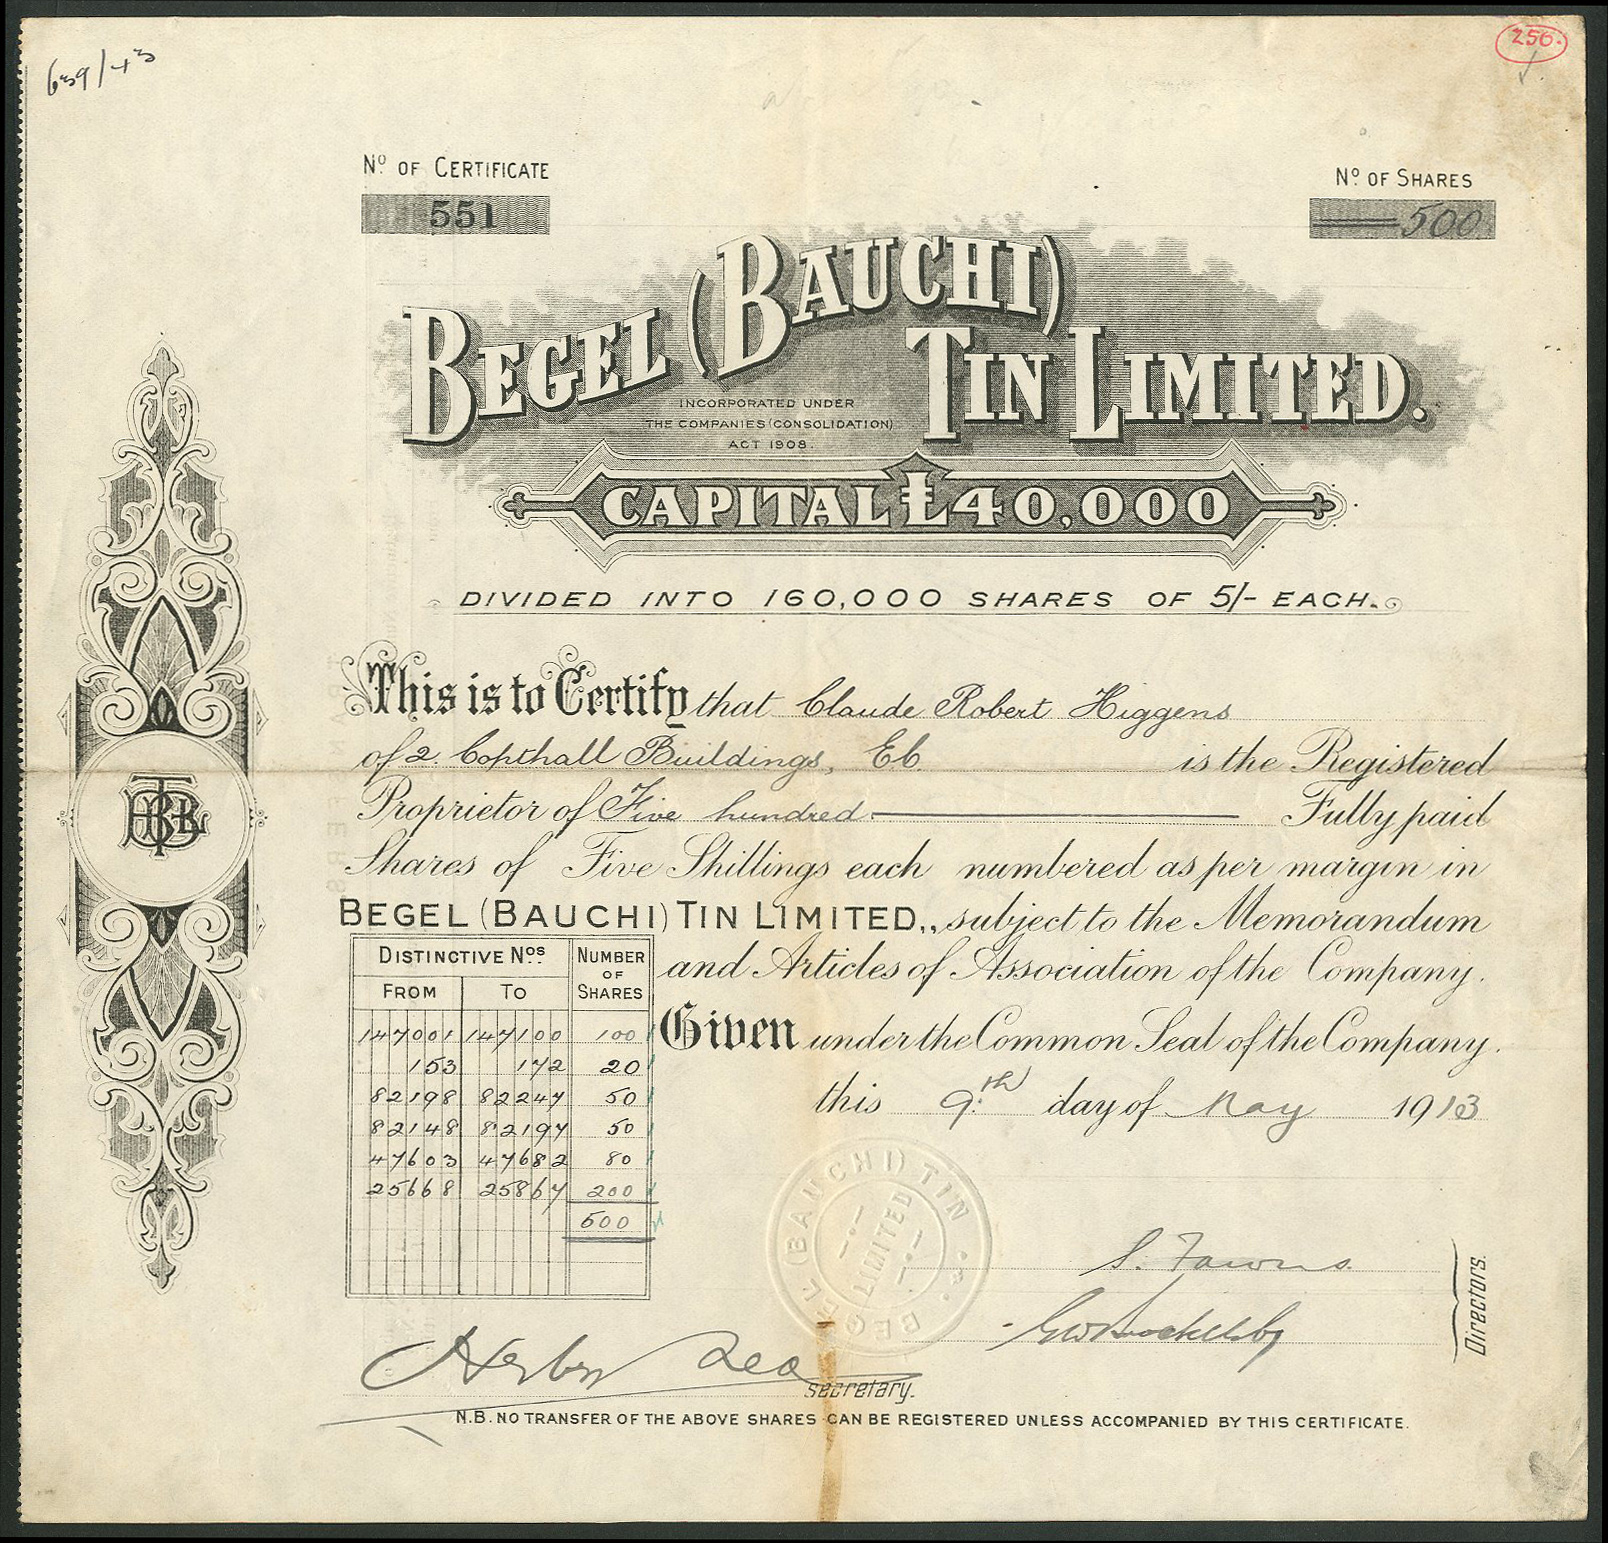 639/43
256.
No. OF CERTIFICATE
551
No. OF SHARES
500
BEGEL (BAUCHI) TIN LIMITED.
INCORPORATED UNDER
THE COMPANIES (CONSOLIDATION)
ACT 1908.
CAPITAL £40,000
DIVIDED INTO 160,000 SHARES OF 5/- EACH.
This is to Certify that Claude Robert Higgens
of 2. Copthall Buildings, E.C. is the Registered
Proprietor of Five hundred Fully paid
Shares of Five Shillings each numbered as per margin in
BEGEL (BAUCHI) TIN LIMITED., subject to the Memorandum
and Articles of Association of the Company.
DISTINCTIVE Nos. NUMBER OF SHARES
FROM TO
147001 147100 100
153 172 20
82198 82247 50
82148 82197 50
47603 47682 80
25668 25867 200
500
Given under the Common Seal of the Company.
this 9th day of May 1913
BEGEL (BAUCHI) TIN
LIMITED
S. Fawns.
Directors.
Secretary.
N.B. NO TRANSFER OF THE ABOVE SHARES CAN BE REGISTERED UNLESS ACCOMPANIED BY THIS CERTIFICATE.